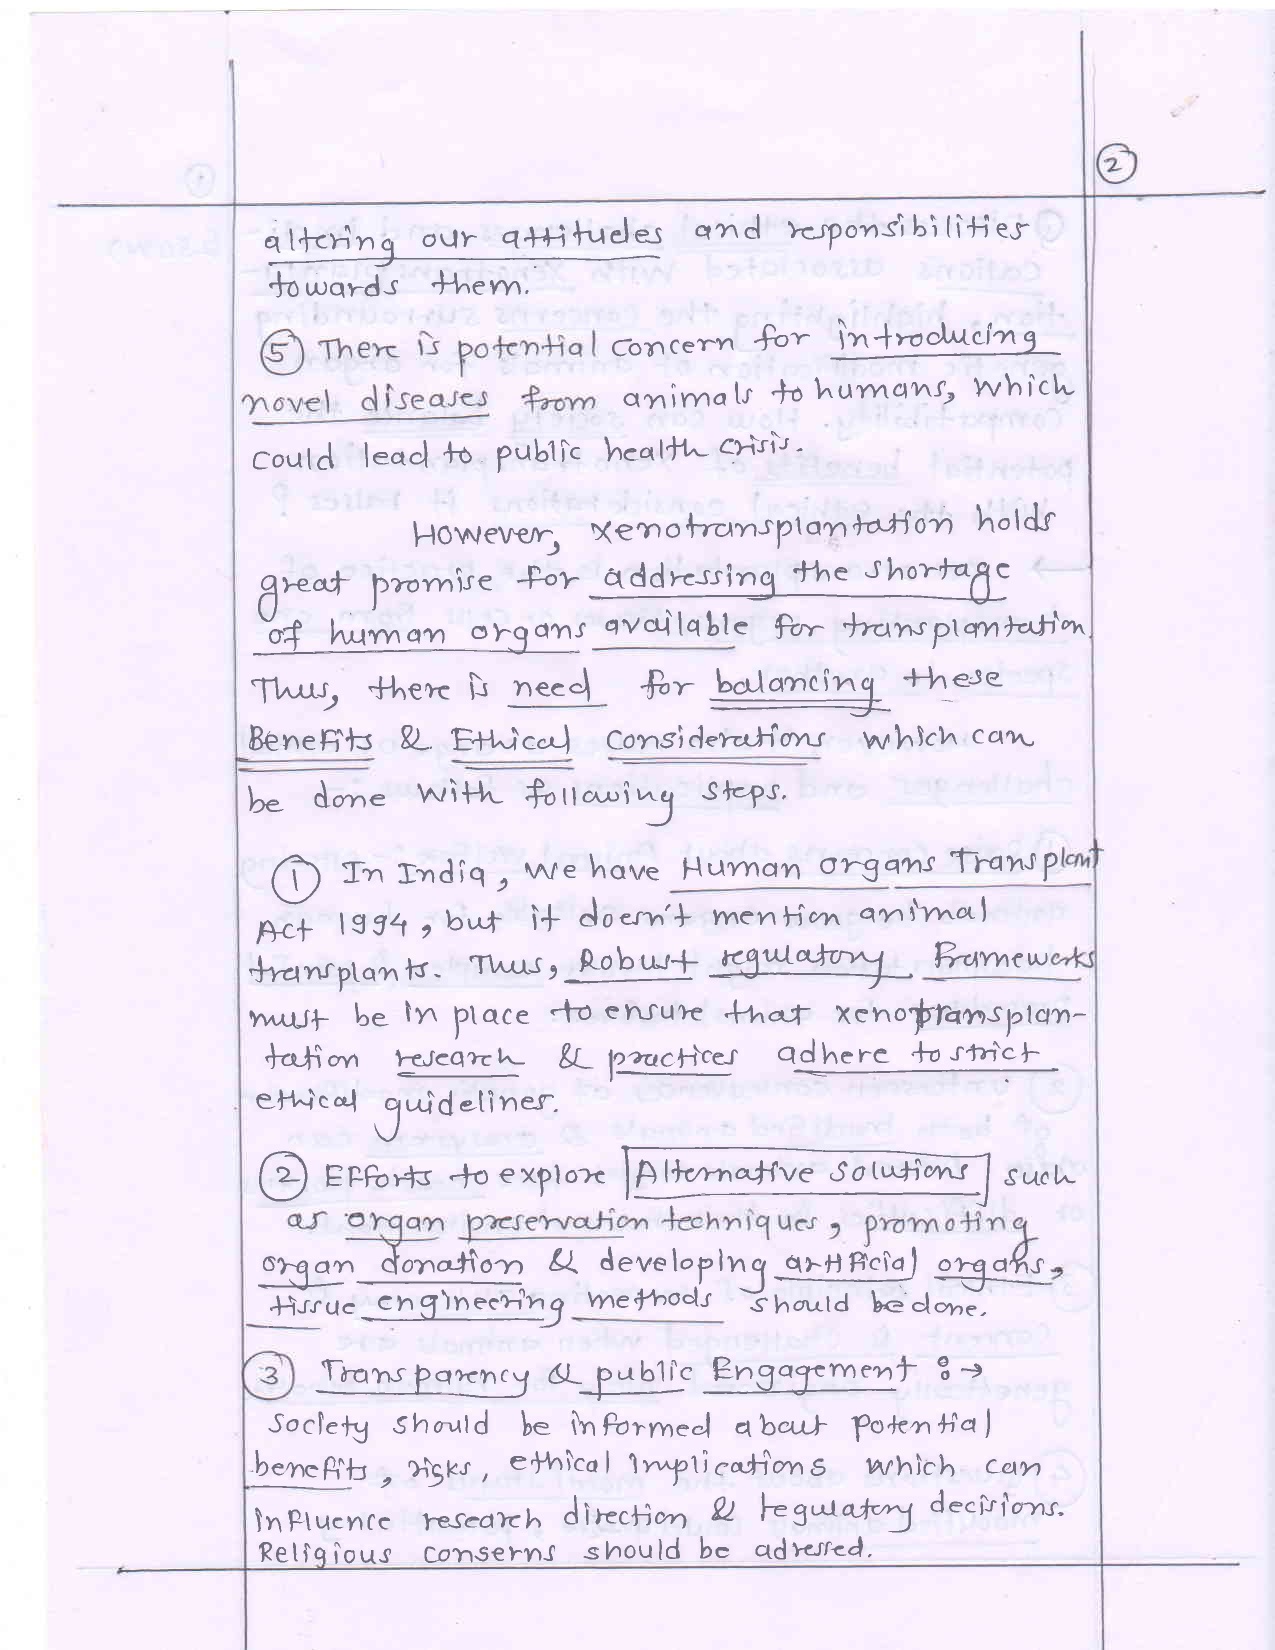 2
altering our attitudes and responsibilities
towards them.
5 There is potential concern for introducing
novel diseases from animals to humans, which
could lead to public health crisis.
However, xenotransplantation holds
great promise for addressing the shortage
of human organs available for transplantation.
Thus, there is need for balancing these
Benefits & Ethical Considerations which can
be done with following steps.
1 In India, we have Human organs Transplant
Act 1994, but it doesn't mention animal
transplants. Thus, Robust regulatory Frameworks
must be in place to ensure that xenotransplan-
tation research & practices adhere to strict
ethical guidelines.
2 Efforts to explore Alternative solutions such
as organ preservation techniques, promoting
organ donation & developing artificial organs,
tissue engineering methods should be done.
3 Transparency & public Engagement :→
Society should be informed about potential
benefits, risks, ethical implications which can
influence research direction & regulatory decisions.
Religious conserns should be adressed.